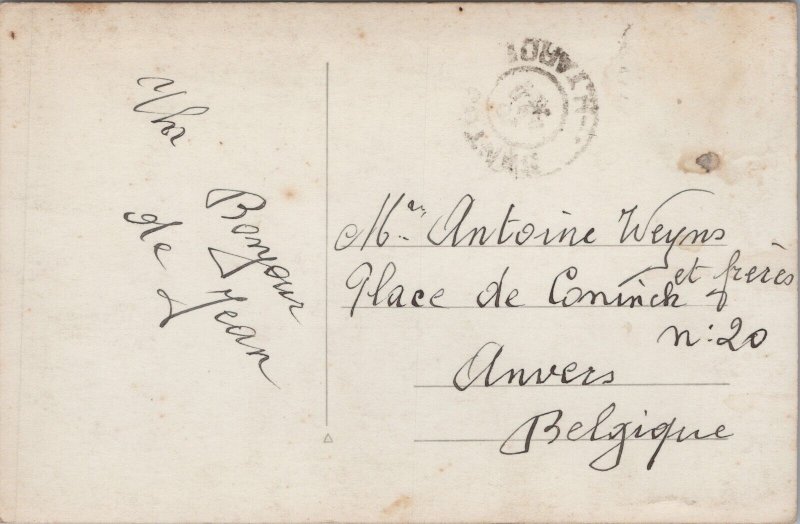 Un
Bonjour
de Jean
Mr Antoine Weyns
et frères
Place de Coninck
n: 20
Anvers
Belgique